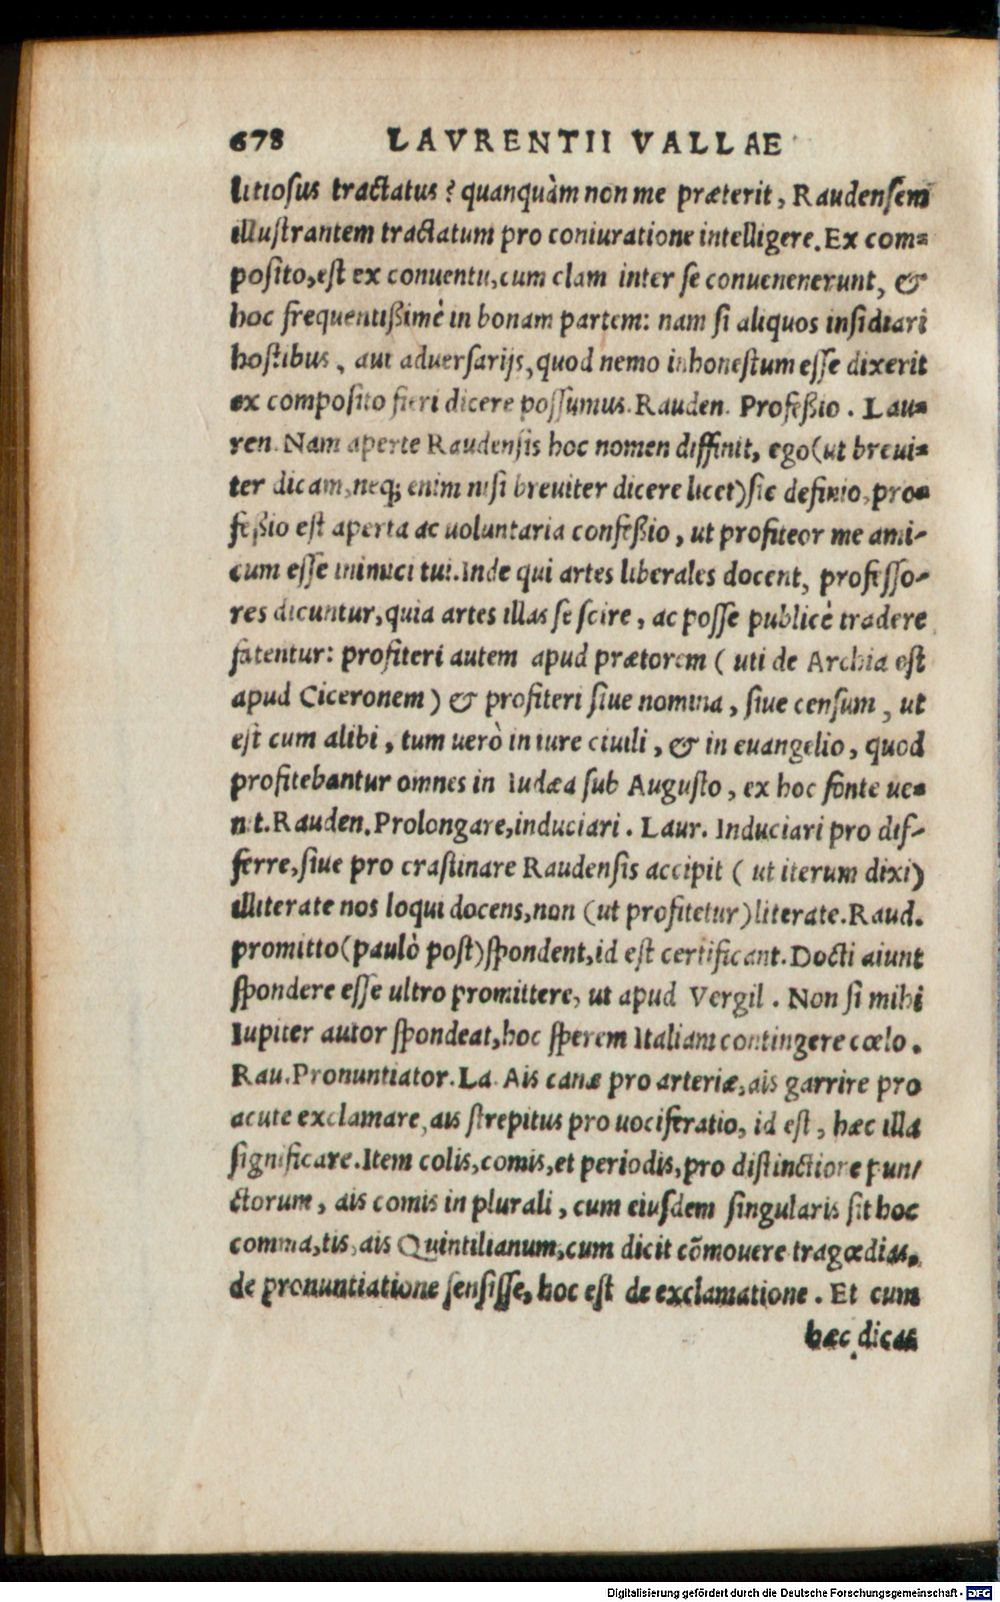 678 LAVRENTII VALLAE
litiosus tractatus? quanquàm non me præterit, Raudensem
illustrantem tractatum pro coniuratione intelligere. Ex com=
posito, est ex conuentu, cum clam inter se conuenenerunt, &
hoc frequentißimè in bonam partem: nam si aliquos insidiari
hostibus, aut aduersarijs, quod nemo inhonestum esse dixerit
ex composito fieri dicere possumus. Rauden. Profeßio. Lau=
ren. Nam aperte Raudensis hoc nomen diffinit, ego (ut breui=
ter dicam, neq; enim nisi breuiter dicere licet) sic definio, pro=
feßio est aperta ac uoluntaria confeßio, ut profiteor me ami-
cum esse inimici tui. Inde qui artes liberales docent, professo-
res dicuntur, quia artes illas se scire, ac posse publicè tradere
fatentur: profiteri autem apud prætorem (uti de Archia est
apud Ciceronem) & profiteri siue nomina, siue censum, ut
est cum alibi, tum uerò in iure ciuili, & in euangelio, quod
profitebantur omnes in Iudæa sub Augusto, ex hoc fonte ue=
nit. Rauden. Prolongare, induciari. Laur. Induciari pro dif-
ferre, siue pro crastinare Raudensis accipit (ut iterum dixi)
illiterate nos loqui docens, non (ut profitetur) literate. Raud.
promitto (paulò post) spondent, id est certificant. Docti aiunt
spondere esse ultro promittere, ut apud Vergil. Non si mihi
Iupiter autor spondeat, hoc sperem Italiam contingere cœlo.
Rau. Pronuntiator. La. Ais canæ pro arteriæ, ais garrire pro
acute exclamare, ais strepitus pro uociferatio, id est, hæc illa
significare. Item colis, comis, et periodis, pro distinctione pun/
ctorum, ais comis in plurali, cum eiusdem singularis sit hoc
comma, tis, ais Quintilianum, cum dicit cõmouere tragœdias,
de pronuntiatione sensisse, hoc est de exclamatione. Et cum
hæc dicas
Digitalisierung gefördert durch die Deutsche Forschungsgemeinschaft - DFG